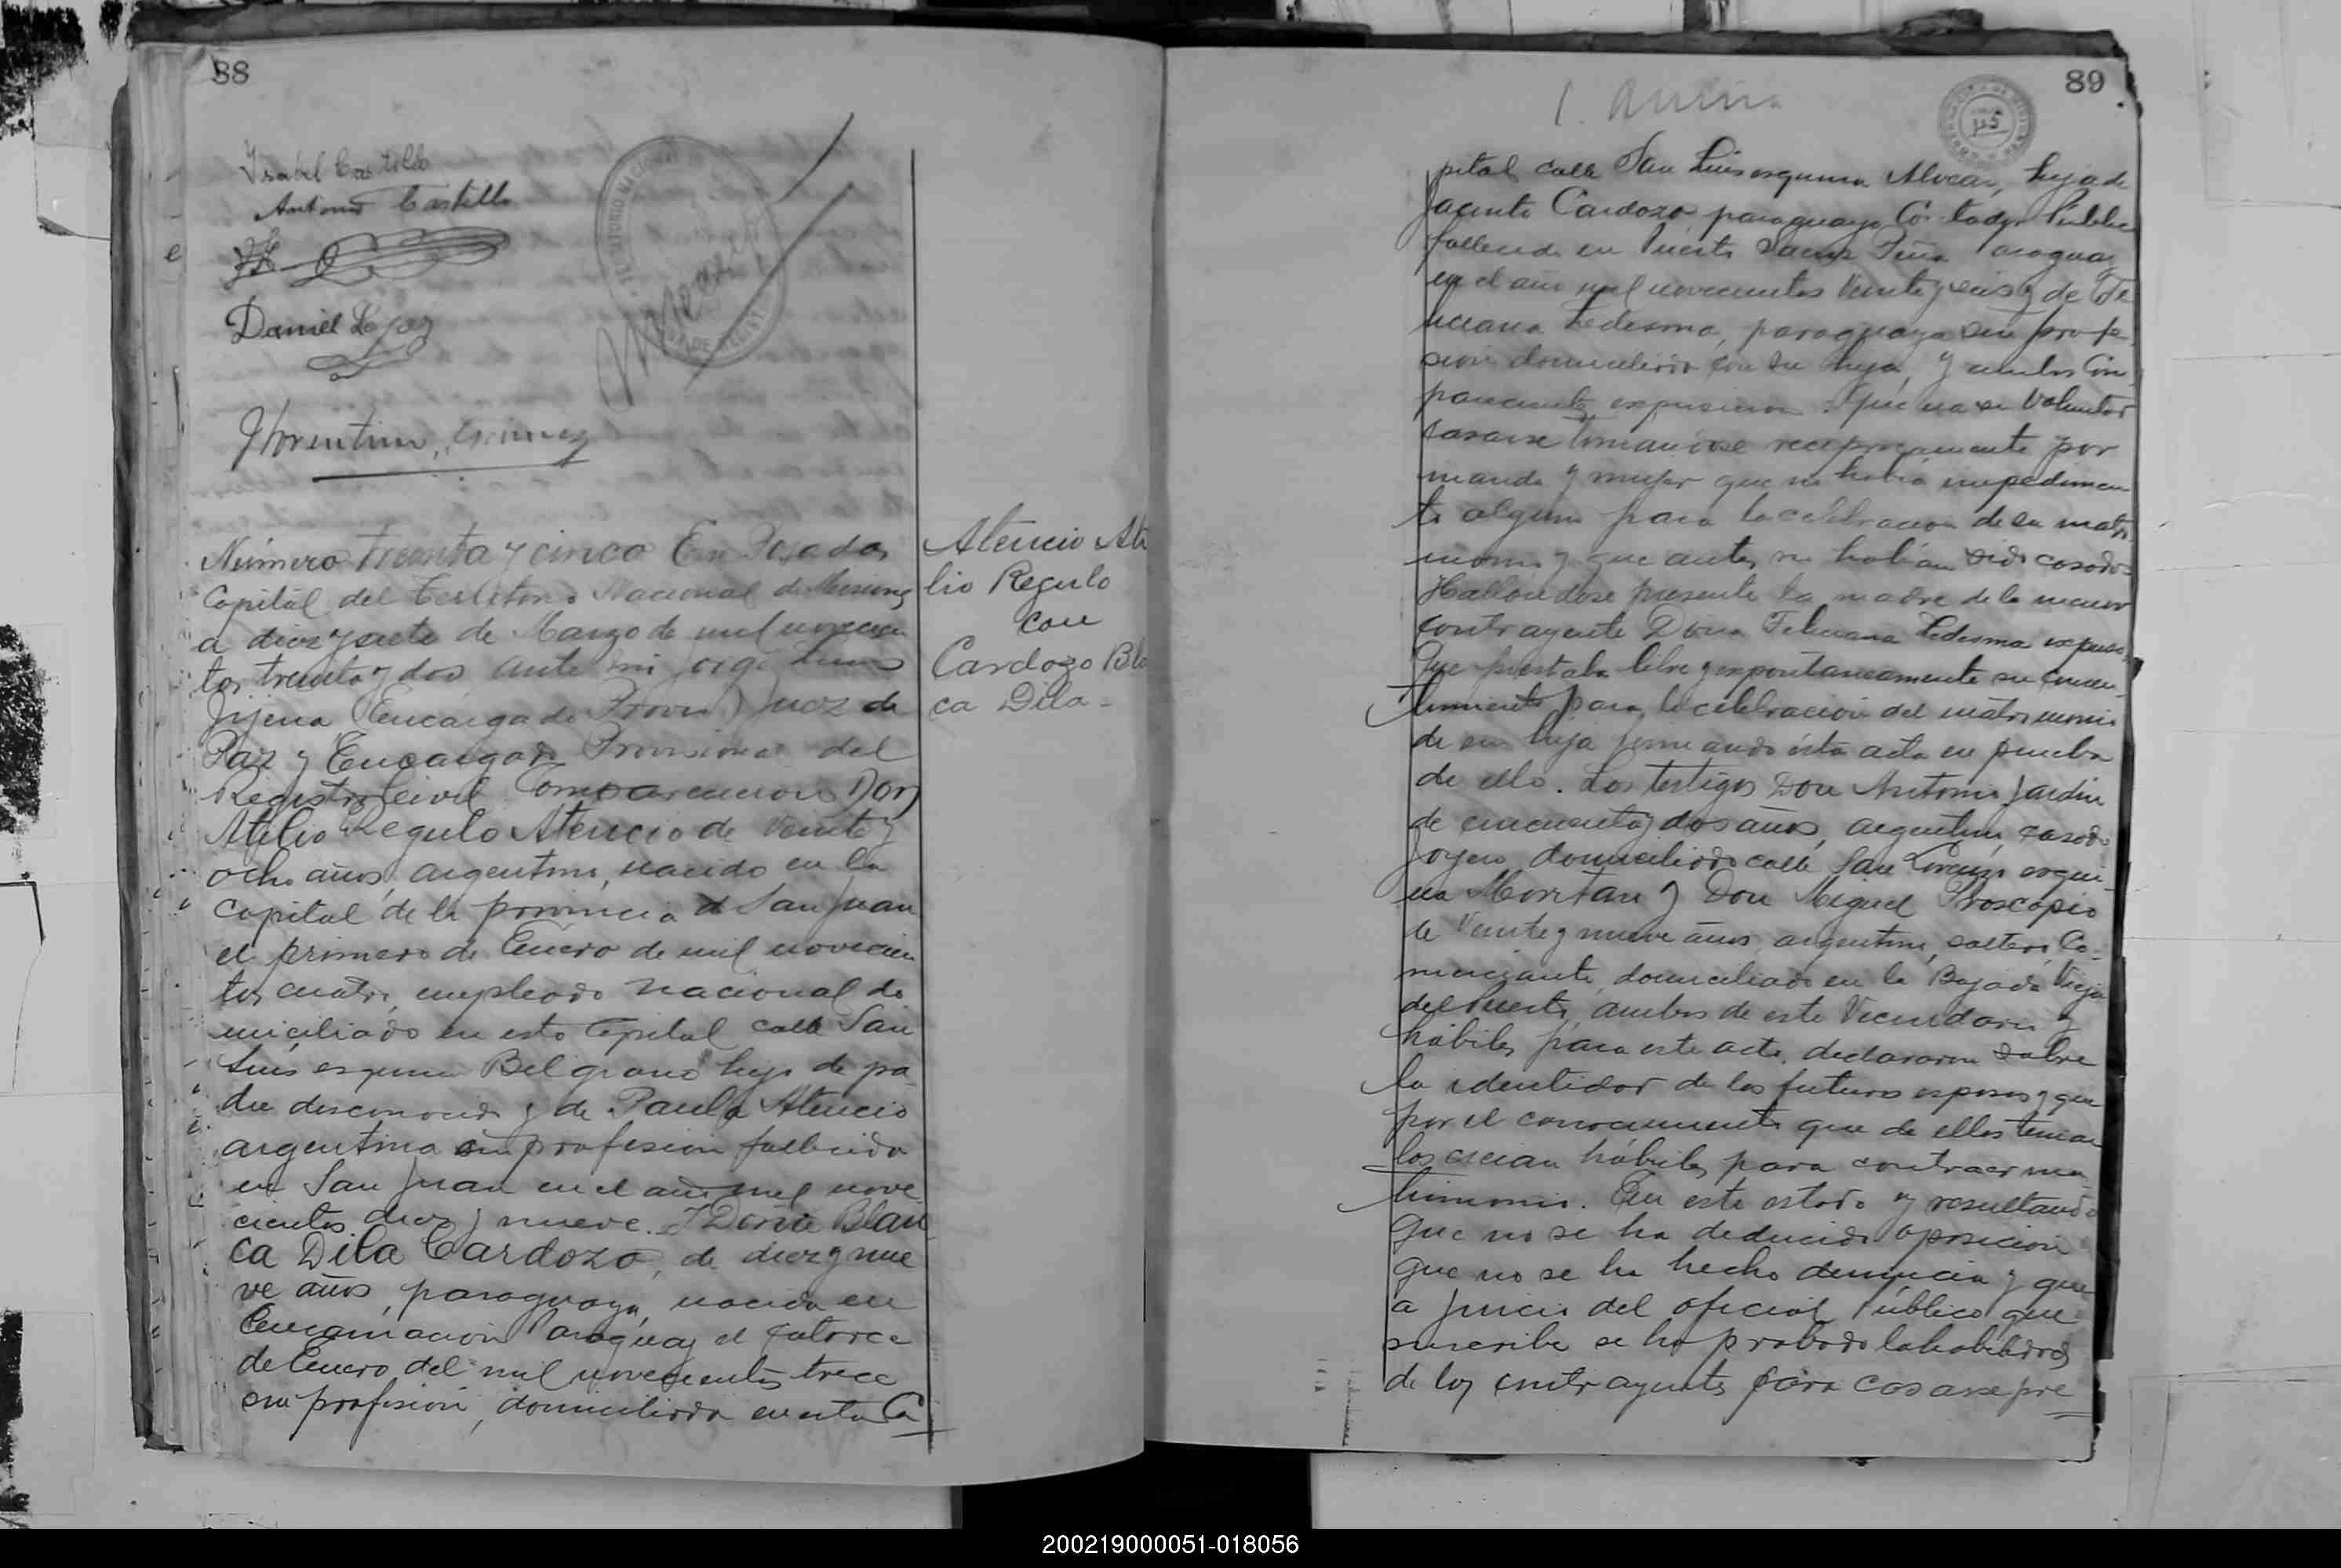 88
Ysabel Castillo
Antonio Castillo
Daniel Lopez
Florentin
Número treinta y cinco En Posadas
Capital del Territorio Nacional de Misiones
a diez y siete de Marzo de mil novecien
tos treinta y dos ante mi Jorge
Jijena (Encargado Provis) Juez de
Paz y Encargado Provisional del
Registro Civil Comparecieron Don
Atilio Regulo Atencio de veinte y
ocho años, argentino, nacido en la
capital de la provincia de San Juan
el primero de Enero de mil novecien
tos cuatro, empleado nacional do
miciliado en esta Capital calle San
Luis esquina Belgrano hijo de pa
dre desconocido y de Paula Atencio
argentina sin profesion fallecida
en San Juan en el año mil nove
cientos diez y nueve. Y Doña Blan
ca Dila Cardozo, de diez y nue
ve años, paraguaya, nacida en
Encarnacion Paraguay el catorce
de Enero del mil novecientos trece
sin profesión, domiciliada en esta Ca
Atencio Ati
lio Regulo
con
Cardozo Bla
ca Dila-
89
pital calle San Luis esquina Alvear, hija de
Jacinto Cardozo paraguayo Contador Público
fallecido en Puerto Saenz Peña Paraguay
en el año mil novecientos veinte y seis y de Fe
liciana Ledesma, paraguaya sin profe
sion domiciliada con su hija, y ambos Com
parecientes expusieron: Que era su voluntad
casarse tomandose reciprocamente por
marido y mujer que no habia impedimen
to alguno para la celebracion de su matri
monio y que antes no habian sido casados
Hallandose presente la madre de la menor
contrayente Doña Feliciana Ledesma expuso,
Que prestaba libre y espontaneamente su consen
timiento para la celebración del matrimonio
de su hija firmando ésta acta en prueba
de ello. Los testigos Don Antonio Jardin
de cincuenta y dos años, argentino, casado
Joyero, domiciliado calle San Lorenzo esqui
na y Don Miguel Proscopio
de Veinte y nueve años, argentino, soltero, Co-
merciante, domiciliado en la Bajada Vieja
del Puerto, ambos de este Vecindario y
hábiles para este acto, declararon sobre
la identidad de los futuros esposos y que
por el conocimiento que de ellos tenian
los creian hábiles para contraer ma
trimonio. En este estado y resultando
que no se ha deducido oposicion
que no se ha hecho denuncia y que
a juicio del oficial Público que
suscribe se ha probado la habilidad
de los contrayentes para casarse pre
200219000051-018056